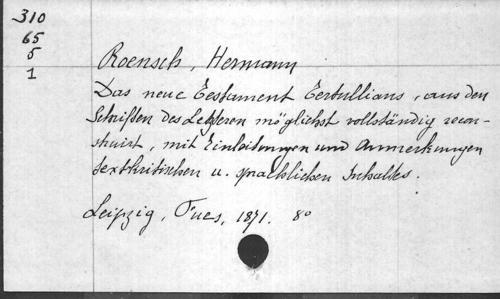 310
65
5
1
Roensch, Hermann
Das neue Testament Tertullians, aus den
Schriften des Letzteren möglichst vollständig recon-
struirt, mit Einleitungen und Anmerkungen
textkritischen u. sprachlichen Inhaltes.
Leipzig, Fues, 1871. 8°